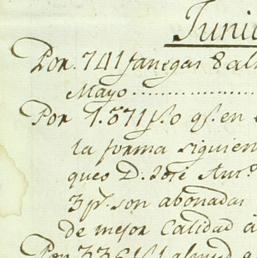 Juni
Por. 741 fanegas 8 al
Mayo
Por 1.571 f.s 0 q.e en
la forma siguien
queo D. José Ant.o
3 p.r son abonadas
de mejor Calidad á
Por 336 f.s 1 almud q